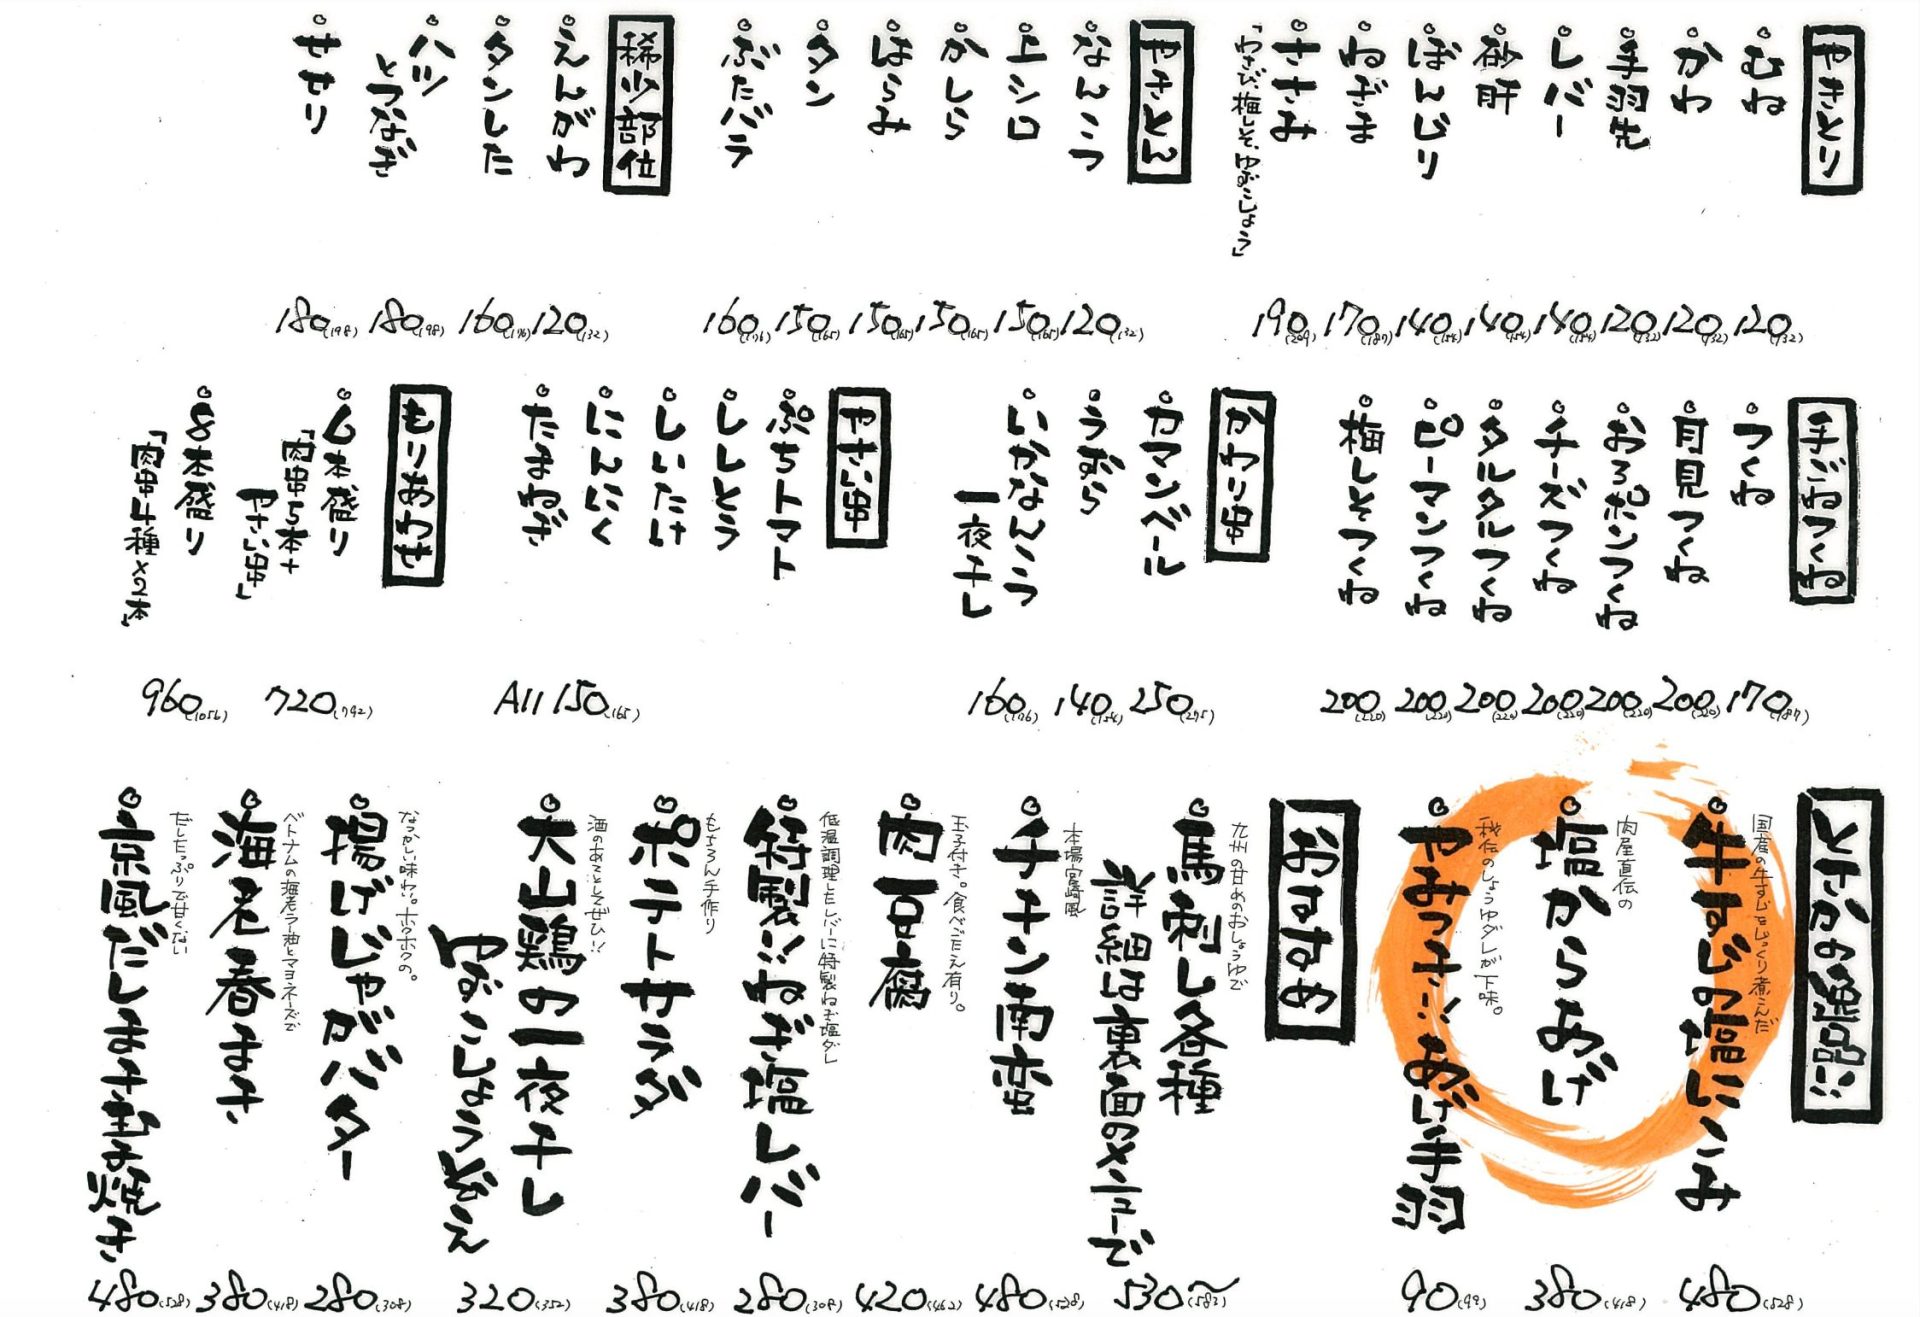 やきとり
むね
120(132)
かわ
120(132)
手羽先
120(132)
レバー
140(154)
砂肝
140(154)
ぼんじり
140(154)
ねぎま
170(187)
ささみ
「わさび、梅しそ、ゆずこしょう」
190(209)
やきとん
なんこつ
120(132)
上シロ
150(165)
かしら
150(165)
はらみ
150(165)
タン
150(165)
ぶたバラ
160(176)
稀少部位
えんがわ
120(132)
タンした
160(176)
ハツ
とつなぎ
180(198)
せせり
180(198)
手ごねつくね
つくね
170(187)
月見つくね
200(220)
おろポンつくね
200(220)
チーズつくね
200(220)
タルタルつくね
200(220)
ピーマンつくね
200(220)
梅しそつくね
200(220)
かわり串
カマンベール
250(275)
うずら
140(154)
いかなんこつ
一夜干し
160(176)
やさい串
ぷちトマト
ししとう
しいたけ
にんにく
たまねぎ
All 150(165)
もりあわせ
6本盛り
「肉串5本+
やさい串」
720(792)
8本盛り
「肉串4種×2本」
960(1056)
とさかの逸品!!
国産の牛すじをじっくり煮こんだ
牛すじの塩にこみ
480(528)
肉屋直伝の
塩からあげ
380(418)
秘伝のしょうゆダレが下味。
やみつき!!あげ手羽
90(99)
おすすめ
九州の甘めのおしょうゆで
馬刺し各種
詳細は裏面のメニューで
530〜(583)
本場宮崎風
チキン南蛮
480(528)
玉子付き。食べごたえ有り。
肉豆腐
420(462)
低温調理したレバーに特製ねぎ塩ダレ
特製!!ねぎ塩レバー
280(308)
もちろん手作り
ポテトサラダ
380(418)
酒のあてとしてぜひ!!
大山鶏の一夜干し
ゆずこしょうぞえ
320(352)
なつかしい味わい。ホクホクの。
揚げじゃがバター
280(308)
ベトナムの海老ラー油とマヨネーズで
海老春まき
380(418)
だしたっぷりで甘くない
京風だしまき玉子焼き
480(528)